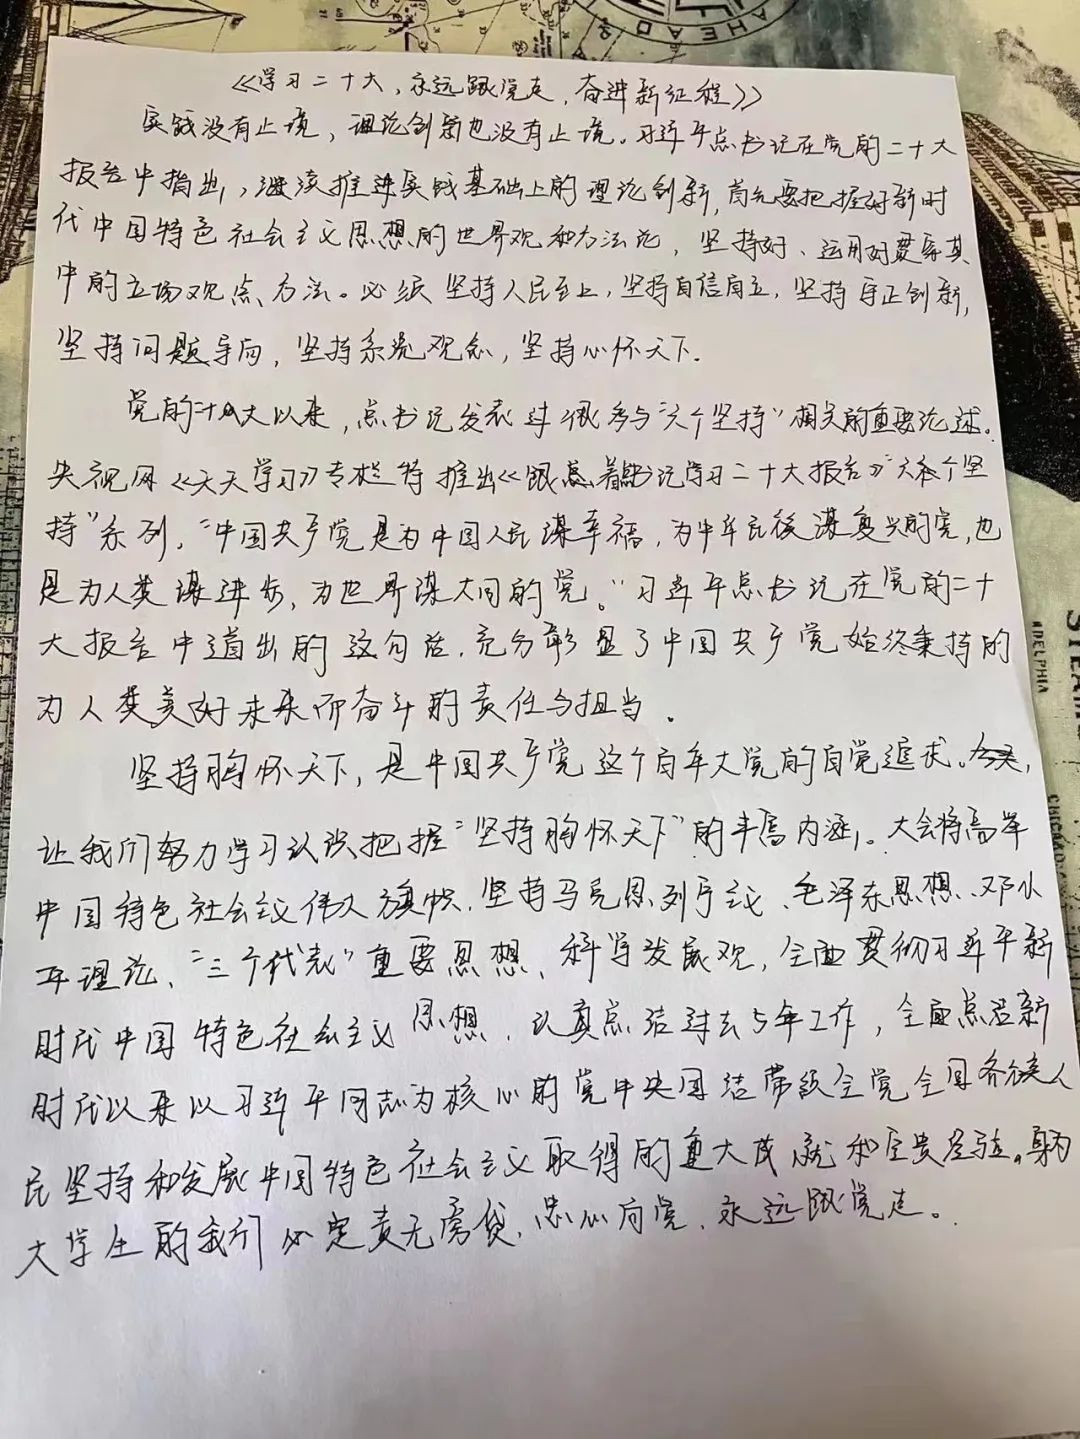 AHEAD
《学习二十大，永远跟党走，奋进新征程》
实践没有止境，理论创新也没有止境。习近平总书记在党的二十大
报告中指出，继续推进实践基础上的理论创新，首先要把握好新时
代中国特色社会主义思想的世界观和方法论，坚持好、运用好贯穿其
中的立场观点方法。必须坚持人民至上，坚持自信自立，坚持守正创新，
坚持问题导向，坚持系统观念，坚持心怀天下.
党的十八大以来，总书记发表过很多与“六个坚持”相关的重要论述。
央视网《天天学习》专栏特推出《跟总着书记学习二十大报告》“六个坚
持”系列，“中国共产党是为中国人民谋幸福，为中华民族谋复兴的党，也
是为人类谋进步，为世界谋大同的党。”习近平总书记在党的二十
大报告中道出的这句话，充分彰显了中国共产党始终秉持的
为人类美好未来而奋斗的责任与担当。
坚持胸怀天下，是中国共产党这个百年大党的自觉追求。今天，
让我们努力学习认识把握“坚持胸怀天下”的丰富内涵。大会将高举
中国特色社会主义伟大旗帜，坚持马克思列宁主义、毛泽东思想、邓小
平理论、“三个代表”重要思想、科学发展观，全面贯彻习近平新
时代中国特色社会主义思想，认真总结过去5年工作，全面总结新
时代以来以习近平同志为核心的党中央团结带领全党全国各族人
民坚持和发展中国特色社会主义取得的重大成就和宝贵经验。身为
大学生的我们必定责无旁贷，忠心向党，永远跟党走。
STEAM
ADELPHIA